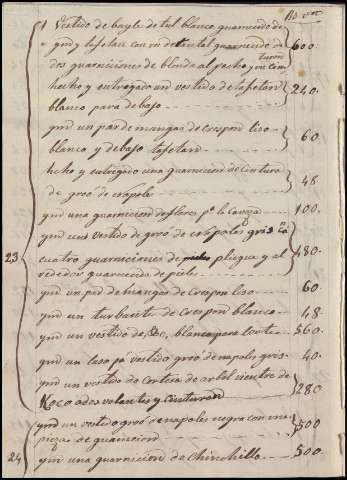 Rs. von
1 Vestido de bayle de tul blanco guarnecido de
qnd y tafetan con de tul guarnecido de
dos guarniciones de blonda al pecho y 600.
hecho y entregado un vestido de tafetan
blanco para debajo 240.
ynd un par de mangas de crespon liso
blanco y debajo tafetan 60
hecho y entregado una guarnicion de cintura
de groó de napole 48
ynd una guarnicion de flores pa. la cabeza 100.
ynd un vestido de groó de napoles gris
cuatro guarniciones de pliegues y al
rededor guarnecido de pieles 480
23
ynd un par de mangas de crespon liso 60
ynd un turbante de crespon blanco 48
ynd un vestido de blanco para corte 560
ynd un vestido groó de napoles gris 40.
ynd un vestido de corteza de arbol vientre de
dos volantes y cinturon 280
ynd un vestido groó de napoles negro con una
piezas de guarnicion 500
24 ynd una guarnicion de Chinchilla 500.